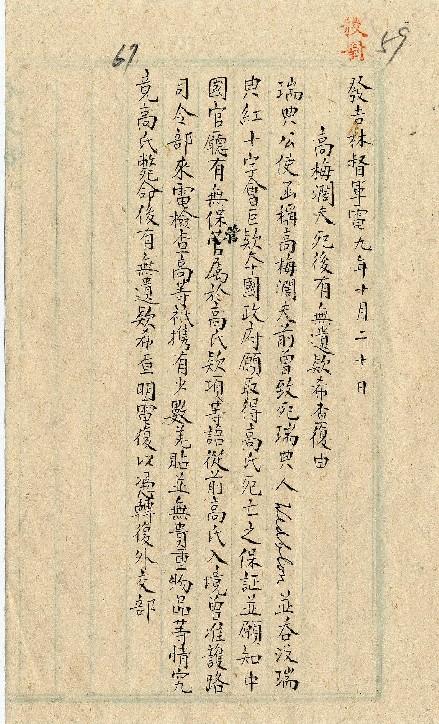 校對
59
67
發吉林督軍電九年十月二十日
高梅澗夫死後有無遺款希查復由
瑞典公使函稱高梅澗夫前曾致死瑞典人Hedblom並吞沒瑞
典紅十字會巨款本國政府願取得高氏死亡之保証並願知中
國官廳有無保管屬於高氏款項等語從前高氏入境曾准護路
司令部來電檢查高等祇携有少數羌貼並無貴重物品等情究
竟高氏斃命後有無遺款希查明電復以憑轉復外交部